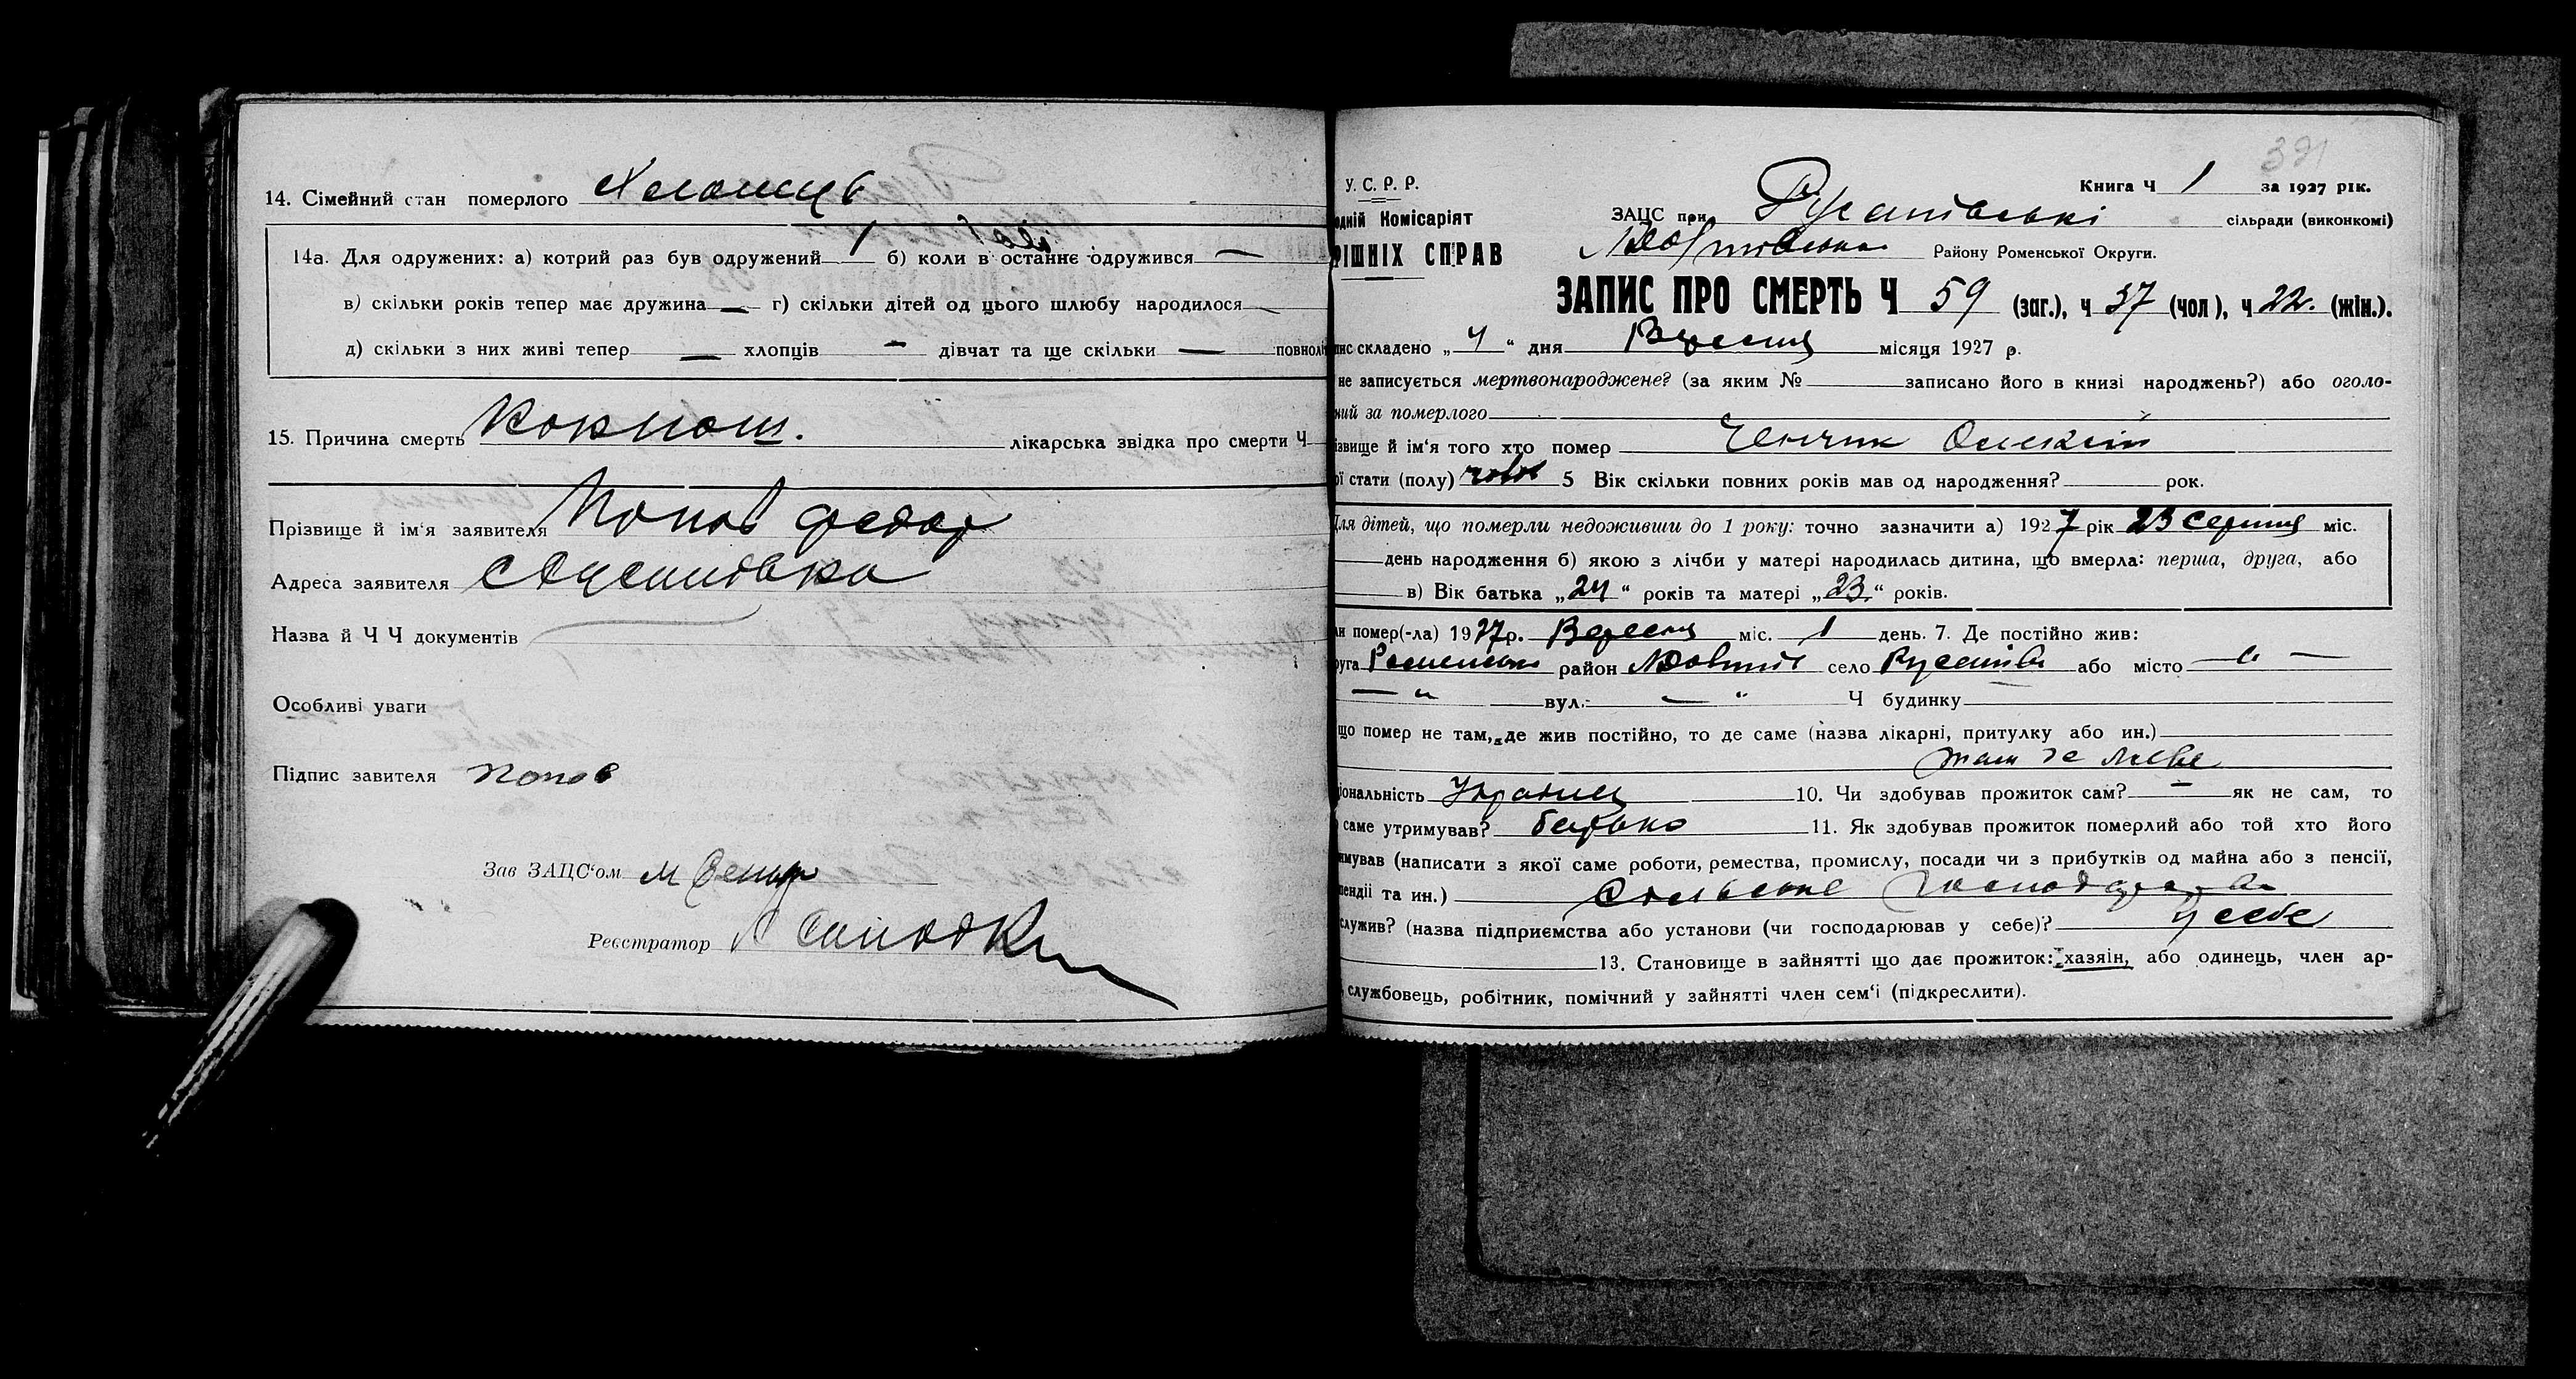 14. Сімейний стан померлого Хлопець
14а. Для одружених: а) котрий раз був одружений 1 б) коли в останнє одружився —
в) скільки років тепер має дружина — г) скільки дітей од цього шлюбу народилося —
д) скільки з них живі тепер — хлопців — дівчат та ще скільки — повноліт
15. Причина смерть Коклюш. лікарська звідка про смерти Ч
Прізвище й ім'я заявителя Попов Федор
Адреса заявителя
Назва й Ч Ч документів
Особливі уваги
Підпис завителя Попов
Зав ЗАЦС'ом
Реєстратор
391
У. С. Р. Р.
одній Комісаріят
РІШНІХ СПРАВ
Книга Ч 1 за 1927 рік.
ЗАЦС при Русанівські сільради (виконкомі)
Району Роменської Округи.
ЗАПИС ПРО СМЕРТЬ Ч 59 (заг.), ч 37 (чол), ч 22. (жін.).
пис складено „4" дня Вересня місяця 1927 р.
не записується мертвонароджене? (за яким № записано його в книзі народжень?) або оголо-
ний за померлого
ізвище й ім'я того хто помер Олексій
ої стати (полу) чолов 5 Вік скільки повних років мав од народження? рок.
Для дітей, що померли недоживши до 1 року: точно зазначити а) 1927 рік 23 Серпня міс.
день народження б) якою з лічби у матері народилась дитина, що вмерла: перша, друга, або
в) Вік батька „24" років та матері „23" років.
ли помер(-ла) 1927р. Вересня міс. 1 день. 7. Де постійно жив:
руга Роменська район село Русанівк або місто — " —
— " вул. — " Ч будинку
що помер не там, де жив постійно, то де саме (назва лікарні, притулку або ин.)
там де живе
іональність Украинец 10. Чи здобував прожиток сам? — як не сам, то
саме утримував? батько 11. Як здобував прожиток померлий або той хто його
имував (написати з якої саме роботи, ремества, промислу, посади чи з прибутків од майна або з пенсії,
пендії та ин.) Сільське господарство
служив? (назва підприємства або установи (чи господарював у себе)? у себе
13. Становище в зайнятті що дає прожиток: хазяїн, або одинець, член ар-
службовець, робітник, помічний у зайнятті член сем'і (підкреслити).